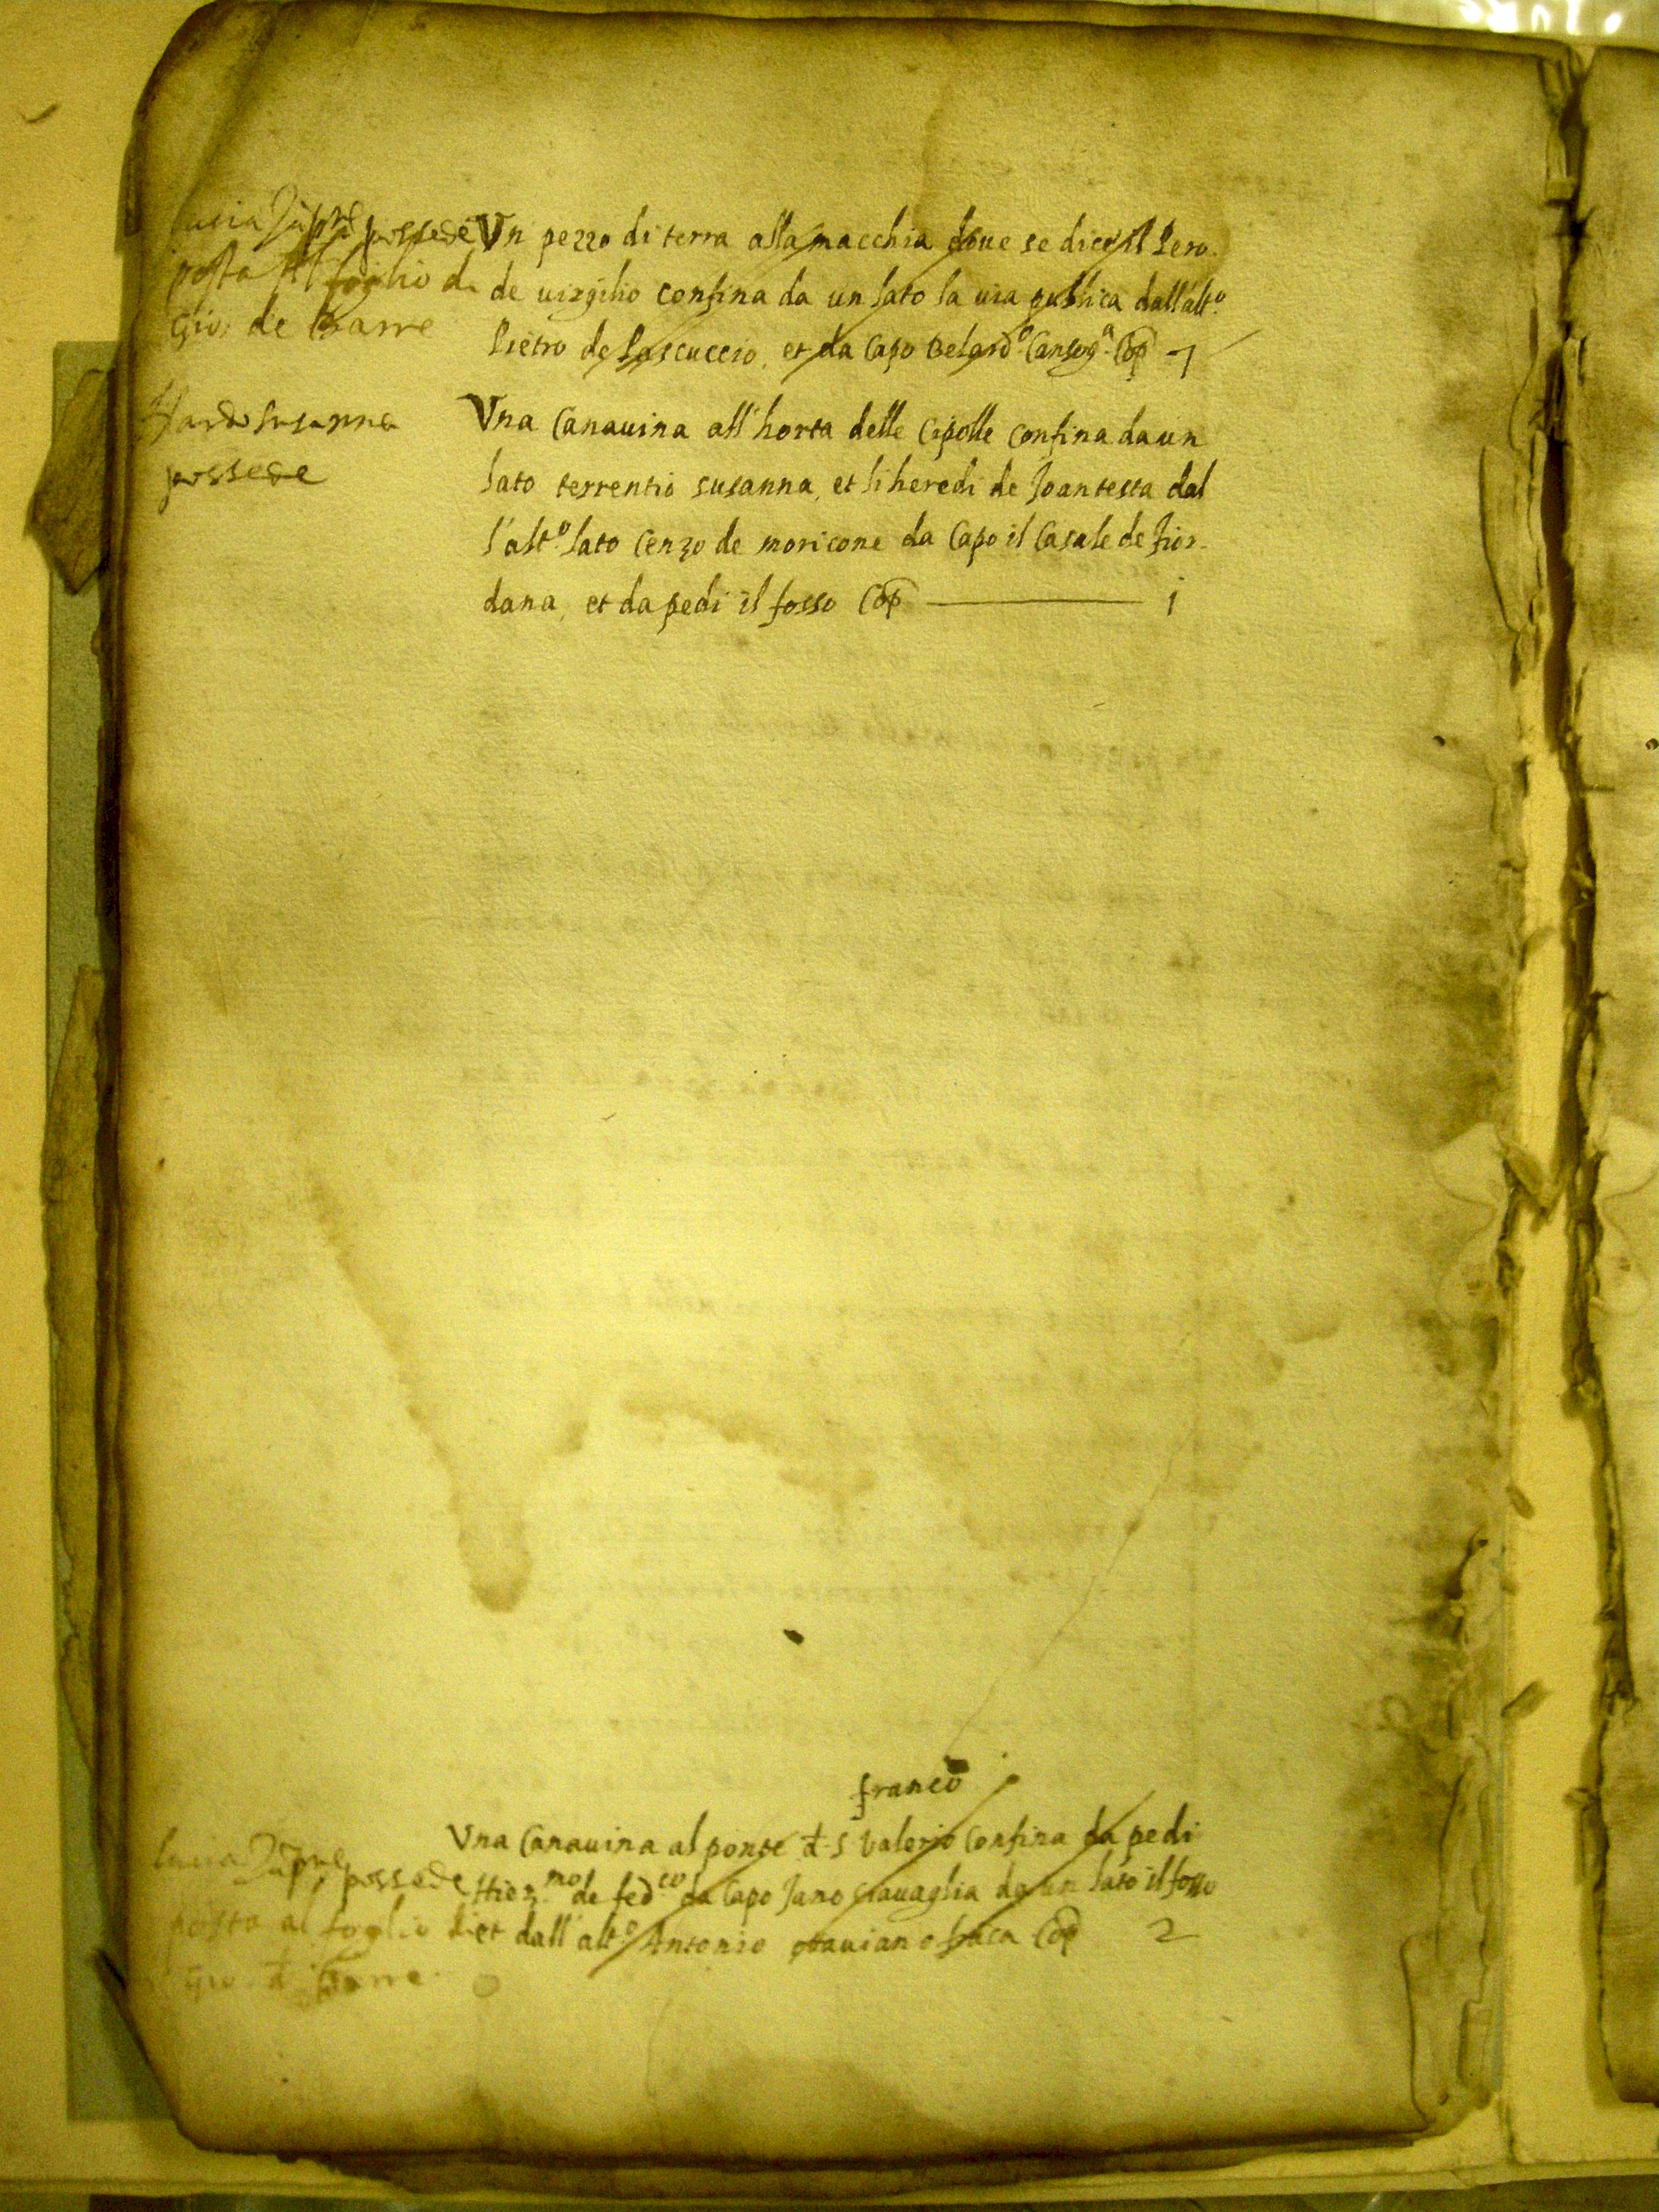 possede
posta al foglio di
Gio: de
Vn pezzo di terra alla macchia doue se dice il Pero
de uirgilio confina da un lato la uia publica dall'alt.o
Pietro de Pascuccio, et da Capo Belard.o Cop 1
Susanna
possede
Vna Canauina all'horta delle Cipolle confina da un
lato terrentio susanna, et li heredi de Joantesta dal
l'alt.o lato Cenzo de moricone da Capo il Casale de Fior-
dana, et da pedi il fosso Cop 1
franco
possede
posta al foglio di
Vna Canauina al ponte d. S Valerio Confina da pedi
Hier.mo de fed.co da Capo Jano da un lato il fosso
et dall'alt.o Antonio Cop 2